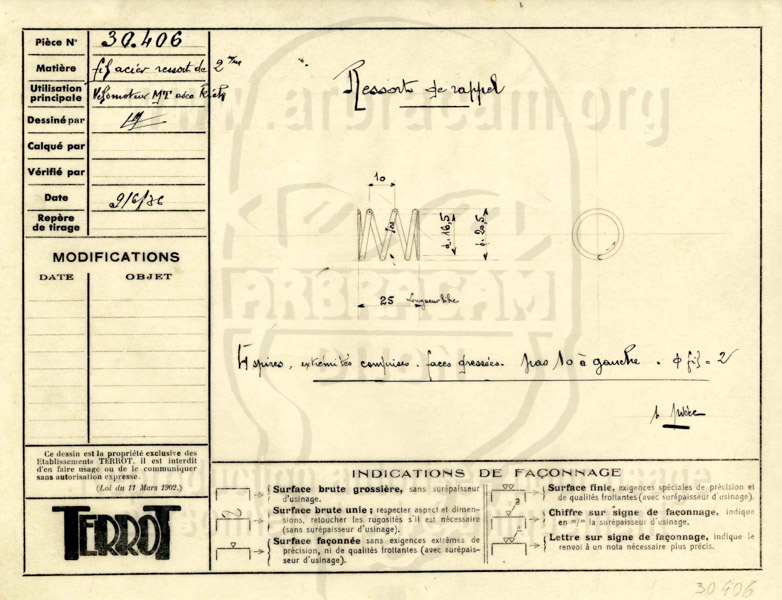 Pièce N° 30.406
Matière fil acier ressort de 2 m/m
Utilisation
principale Vélomoteur MT avec
Dessiné par
Calqué par
Vérifié par
Date 9/6/36
Repère
de tirage
MODIFICATIONS
DATE OBJET
Ce dessin est la propriété exclusive des
Etablissements TERROT, il est interdit
d'en faire usage ou de le communiquer
sans autorisation expresse.
(Loi du 11 Mars 1902.)
TERROT
Ressort de rappel
www.arbracam.org
10
d. 16,5
20,5
25 Longueur libre
ARBRACAM
spires, extrémités comprises. faces dressées. pas 10 à gauche. ϕ fil = 2
1 pièce
INDICATIONS DE FAÇONNAGE
Surface brute grossière, sans surépaisseur
d'usinage.
Surface brute unie ; respecter aspect et dimen-
sions, retoucher les rugosités s'il est nécessaire
(sans surépaisseur d'usinage).
Surface façonnée sans exigences extrêmes de
précision, ni de qualités frottantes (avec surépais-
seur d'usinage).
Surface finie, exigences spéciales de précision et
de qualités frottantes (avec surépaisseur d'usinage).
Chiffre sur signe de façonnage, indique
en m/m la surépaisseur d'usinage.
Lettre sur signe de façonnage, indique le
renvoi à un nota nécessaire plus précis.
30406